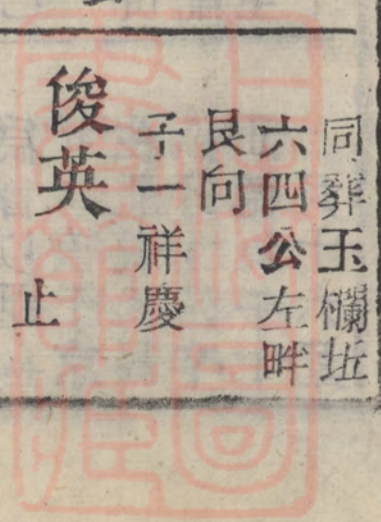 同葬玉欄坵
六四公左畔
艮向
子一祥慶
俊英
止